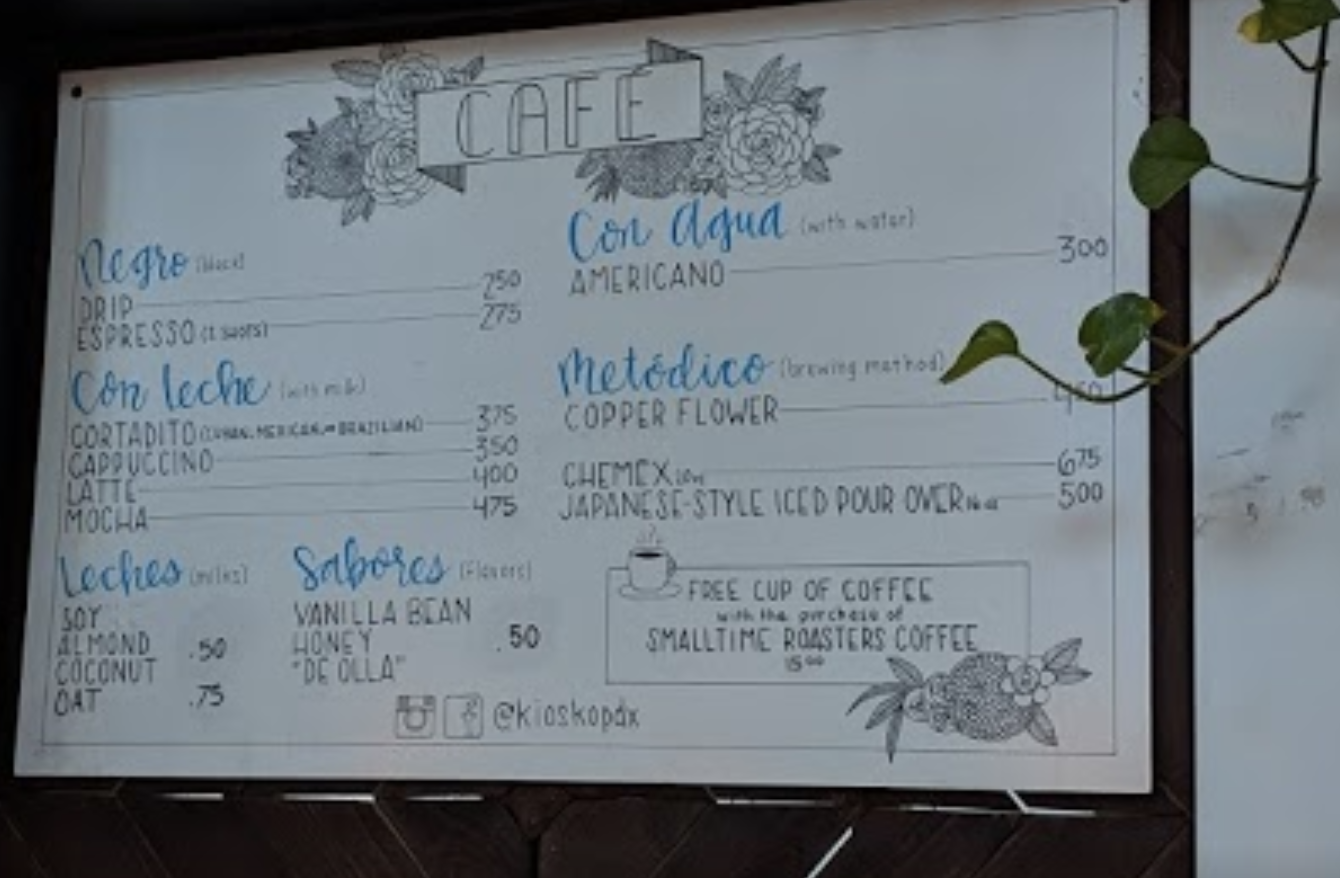 CAFE
Negro (black)
DRIP 250
ESPRESSO (2 SHOTS) 275
Con leche (with milk)
CORTADITO (CUBAN, MEXICAN, OR BRAZILIAN) 375
CAPPUCCINO 350
LATTE 400
MOCHA 475
Leches (milks)
SOY
ALMOND .50
COCONUT
OAT .75
Sabores (Flavors)
VANILLA BEAN
HONEY .50
"DE OLLA"
Con agua (with water)
AMERICANO 300
Metódico (brewing method)
COPPER FLOWER
CHEMEX 675
JAPANESE-STYLE ICED POUR OVER 500
FREE CUP OF COFFEE
with the purchase of
SMALLTIME ROASTERS COFFEE
15⁰⁰
@kioskopdx